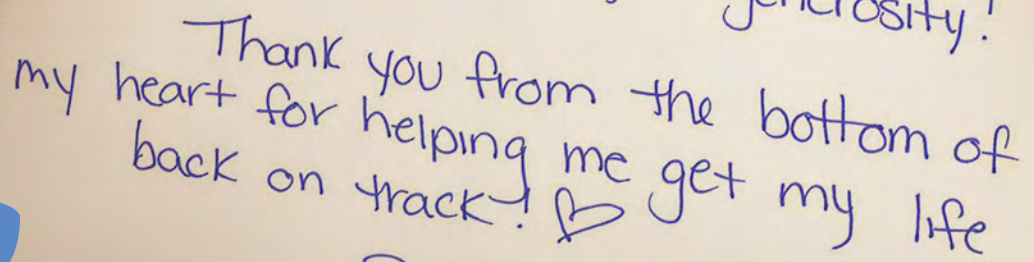 generosity!
Thank you from the bottom of
my heart for helping me get my life
back on track! ♡